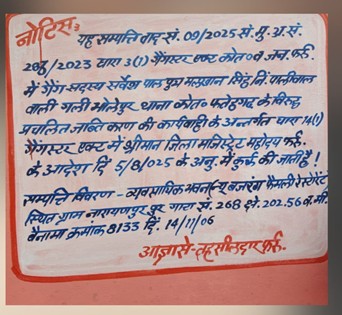 नोटिस:
यह सम्पत्ति वाद सं. 09/2025 सं. मु.अ.सं.
208/2023 धारा 3(1) गैंगस्टर एक्ट कोत० व जन. फर्रु.
में गैंग सदस्य सर्वेश पाल पुत्र मलखान सिंह नि. पालीवाल
वाली गली भोलेपुर थाना कोत० फतेहगढ के विरुद्ध
प्रचलित जब्तिकरण की कार्यवाही के अन्तर्गत धारा 14(1)
गैंगस्टर एक्ट में श्रीमान जिला मजिस्ट्रेट महोदय फर्रु.
के आदेश दि. 5/8/025 के अनु. में कुर्क की जाती है!
सम्पत्ति विवरण - व्यवसायिक भवन न्यू बजरंग फैमली रेस्टोरेंट
स्थित ग्राम नारायणपुर पुर गाटा सं. 268 क्षे. 202.56 व.मी.
बैनामा क्रमांक 8133 दि. 14/11/06
आज्ञा से - तहसीलदार फर्रु.